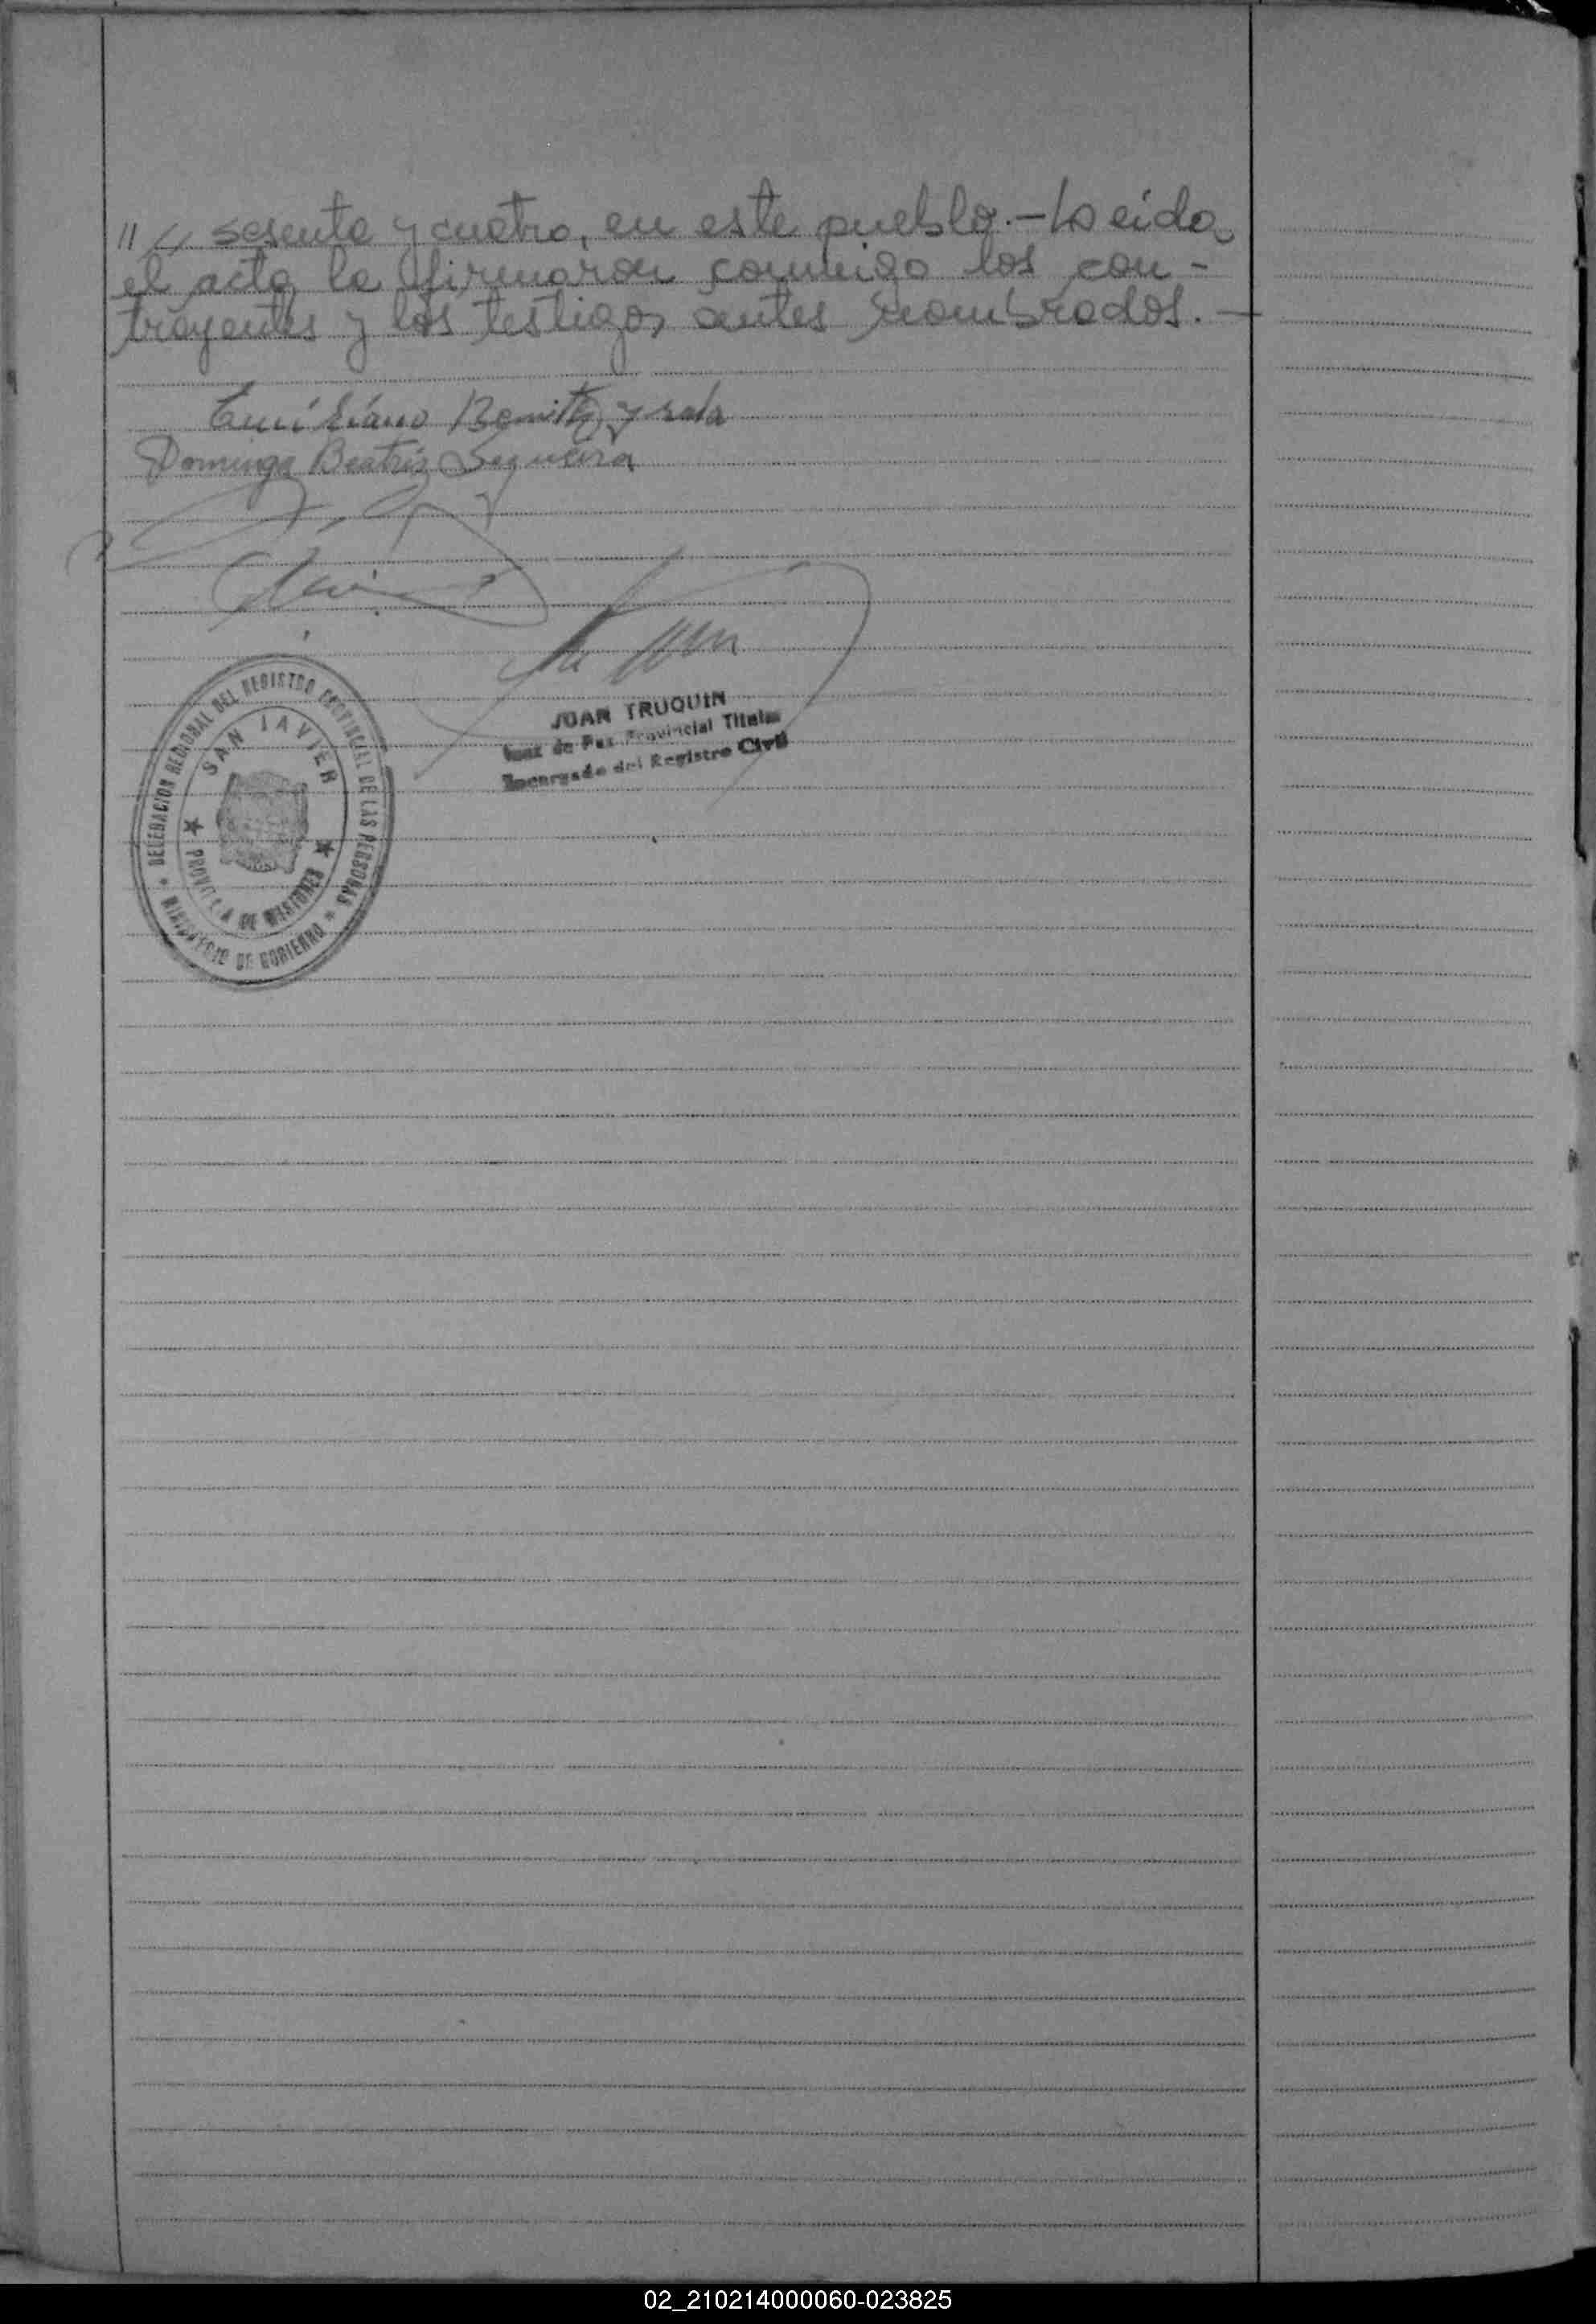 // // sesenta y cuatro, en este pueblo.- Leida
el acta, la firmaron conmigo los con-
trayentes y los testigos antes nombrados.-
Emiliano Benitez
Dominga Beatriz Sequeira
JUAN TRUQUIN
Juez de Paz Provincial Titular
Encargado del Registro Civil
DELEGACION REGIONAL DEL REGISTRO PROVINCIAL DE LAS PERSONAS
SAN JAVIER
PROVINCIA DE MISIONES
MINISTERIO DE GOBIERNO
02_210214000060-023825